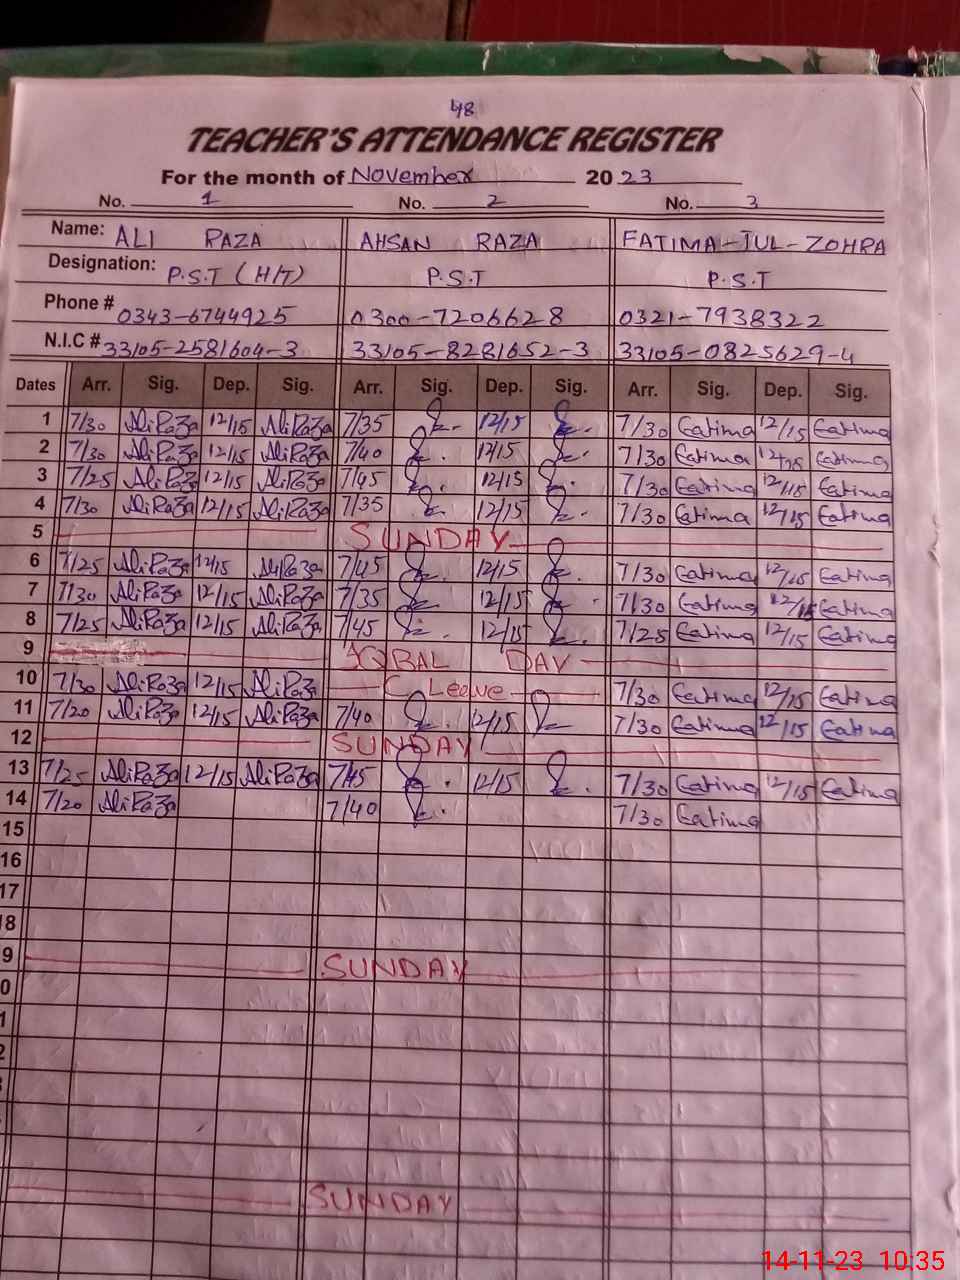 48
TEACHER'S ATTENDANCE REGISTER
For the month of November 2023
No. 1 No. 2 No. 3
Name: ALI RAZA AHSAN RAZA FATIMA-TUL-ZOHRA
Designation: P.S.T (H/T) P.S.T P.S.T
Phone # 0343-6744925 0300-7206628 0321-7938322
N.I.C # 33105-2581604-3 33105-8281652-3 33105-0825629-4
Dates Arr. Sig. Dep. Sig. Arr. Sig. Dep. Sig. Arr. Sig. Dep. Sig.
1 7/30 AliRaza 12/15 AliRaza 7/35 12/15 7/30 Fatima 12/15 Fatima
2 7/30 AliRaza 12/15 AliRaza 7/40 12/15 7/30 Fatima Fatima
3 7/25 AliRaza 12/15 AliRaza 7/45 12/15 7/30 Fatima 12/15 Fatima
4 7/30 AliRaza 12/15 AliRaza 7/35 12/15 7/30 Fatima 12/15 Fatima
5 SUNDAY
6 7/25 AliRaza 12/15 AliRaza 7/45 12/15 7/30 Fatima 12/15 Fatima
7 7/30 AliRaza 12/15 AliRaza 7/35 12/15 7/30 Fatima 12/15 Fatima
8 7/25 AliRaza 12/15 AliRaza 7/45 12/15 7/25 Fatima 12/15 Fatima
9 IQBAL DAY
10 7/30 AliRaza 12/15 AliRaza C Leeve 7/30 Fatima 12/15 Fatima
11 7/20 AliRaza 12/15 AliRaza 7/40 12/15 7/30 Fatima 12/15 Fatima
12 SUNDAY
13 7/25 AliRaza 12/15 AliRaza 7/45 12/15 7/30 Fatima 12/15 Fatima
14 7/20 AliRaza 7/40 7/30 Fatima
15
16
17
18
9 SUNDAY
0
1
2
SUNDAY
14-11-23 10:35